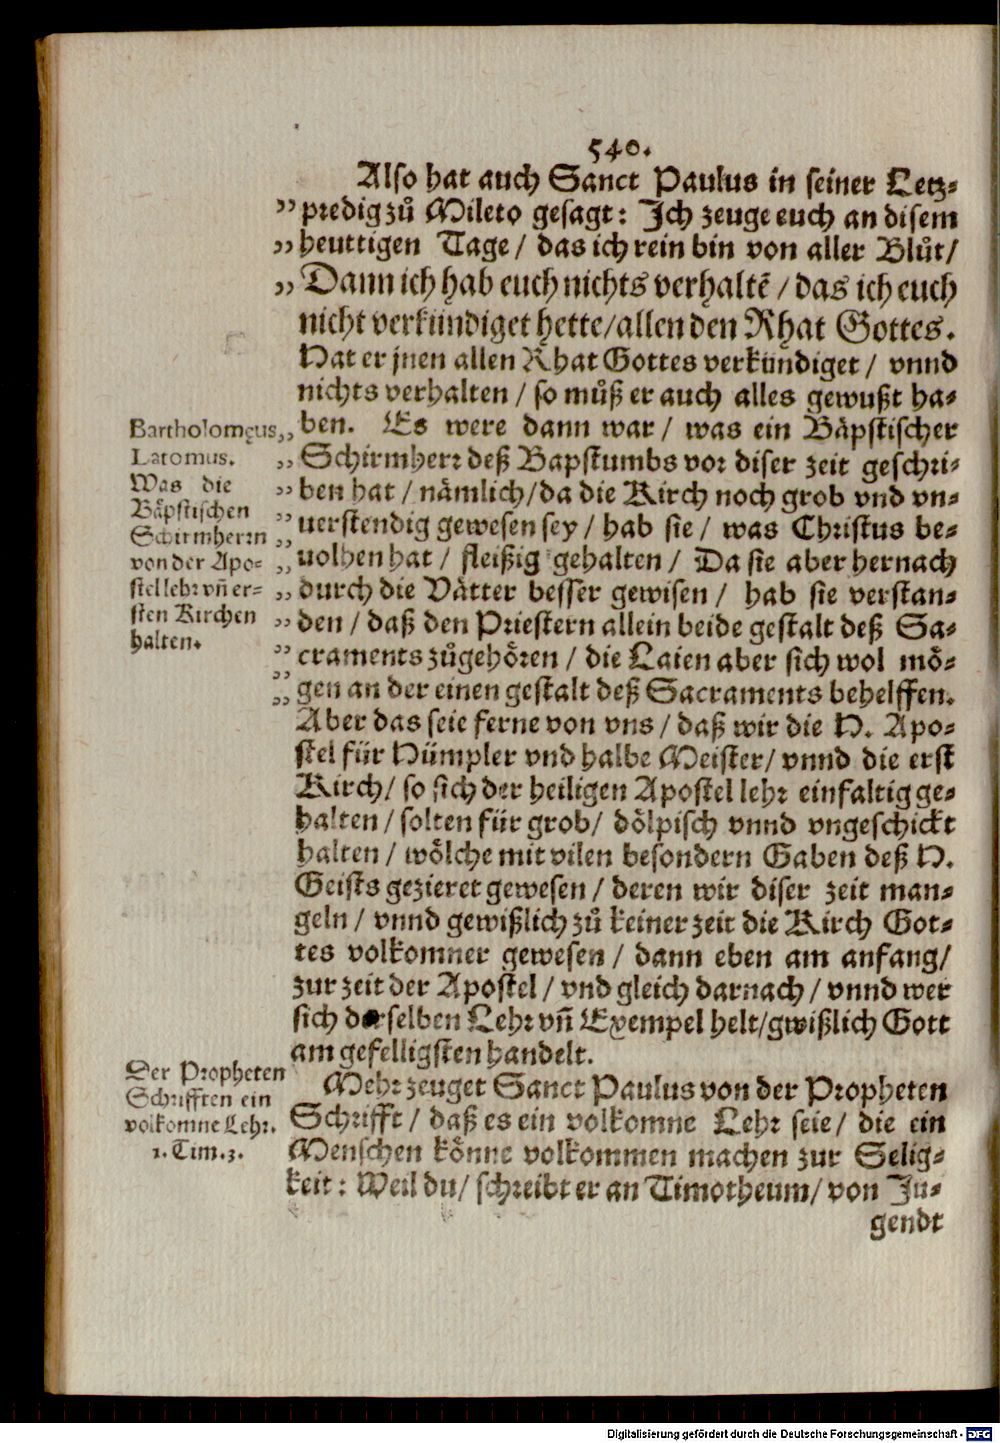 540.
Also hat auch Sanct Paulus in seiner Letz⸗
„ predig zů Mileto gesagt: Ich zeuge euch an disem
„ heuttigen Tage/ das ich rein bin von aller Blůt/
„ Dann ich hab euch nichts verhaltẽ/ das ich euch
nicht verkündiget hette/ allen den Rhat Gottes.
Hat er jnen allen Rhat Gottes verkündiget/ vnnd
nichts verhalten/ so můß er auch alles gewußt ha⸗
„ ben. Es were dann war/ was ein Bäpstischer
„ Schirmherr deß Bapstumbs vor diser zeit geschri⸗
„ ben hat/ nämlich/ da die Kirch noch grob vnd vn⸗
„ uerstendig gewesen sey/ hab sie/ was Christus be⸗
„ uolhen hat/ fleißig gehalten/ Da sie aber hernach
„ durch die Vätter besser gewisen/ hab sie verstan⸗
„ den/ daß den Priestern allein beide gestalt deß Sa⸗
„ craments zůgehören/ die Laien aber sich wol mö⸗
„ gen an der einen gestalt deß Sacraments behelffen.
Aber das seie ferne von vns/ daß wir die H. Apo⸗
stel für Hümpler vnd halbe Meister/ vnnd die erst
Kirch/ so sich der heiligen Apostel lehr einfaltig ge⸗
halten/ solten für grob/ dölpisch vnnd vngeschickt
halten/ wölche mit vilen besondern Gaben deß H.
Geists gezieret gewesen/ deren wir diser zeit man⸗
geln/ vnnd gewißlich zů keiner zeit die Kirch Got⸗
tes volkomner gewesen/ dann eben am anfang/
zur zeit der Apostel/ vnd gleich darnach/ vnnd wer
sich derselben Lehr vñ Exempel helt/ gwißlich Gott
am gefelligsten handelt.
Mehr zeuget Sanct Paulus von der Propheten
Schrifft/ daß es ein volkomne Lehr seie/ die ein
Menschen könne volkommen machen zur Selig⸗
keit: Weil du/ schreibt er an Timotheum/ von Ju⸗
gendt
Bartholomęus
Latomus.
Was die
Bäpstischen
Schirmherrn
von der Apo⸗
stel lehr vñ er⸗
sten Kirchen
halten.
Der Propheten
Schrifften ein
volkomne Lehr.
1. Tim. 3.
Digitalisierung gefördert durch die Deutsche Forschungsgemeinschaft - DFG